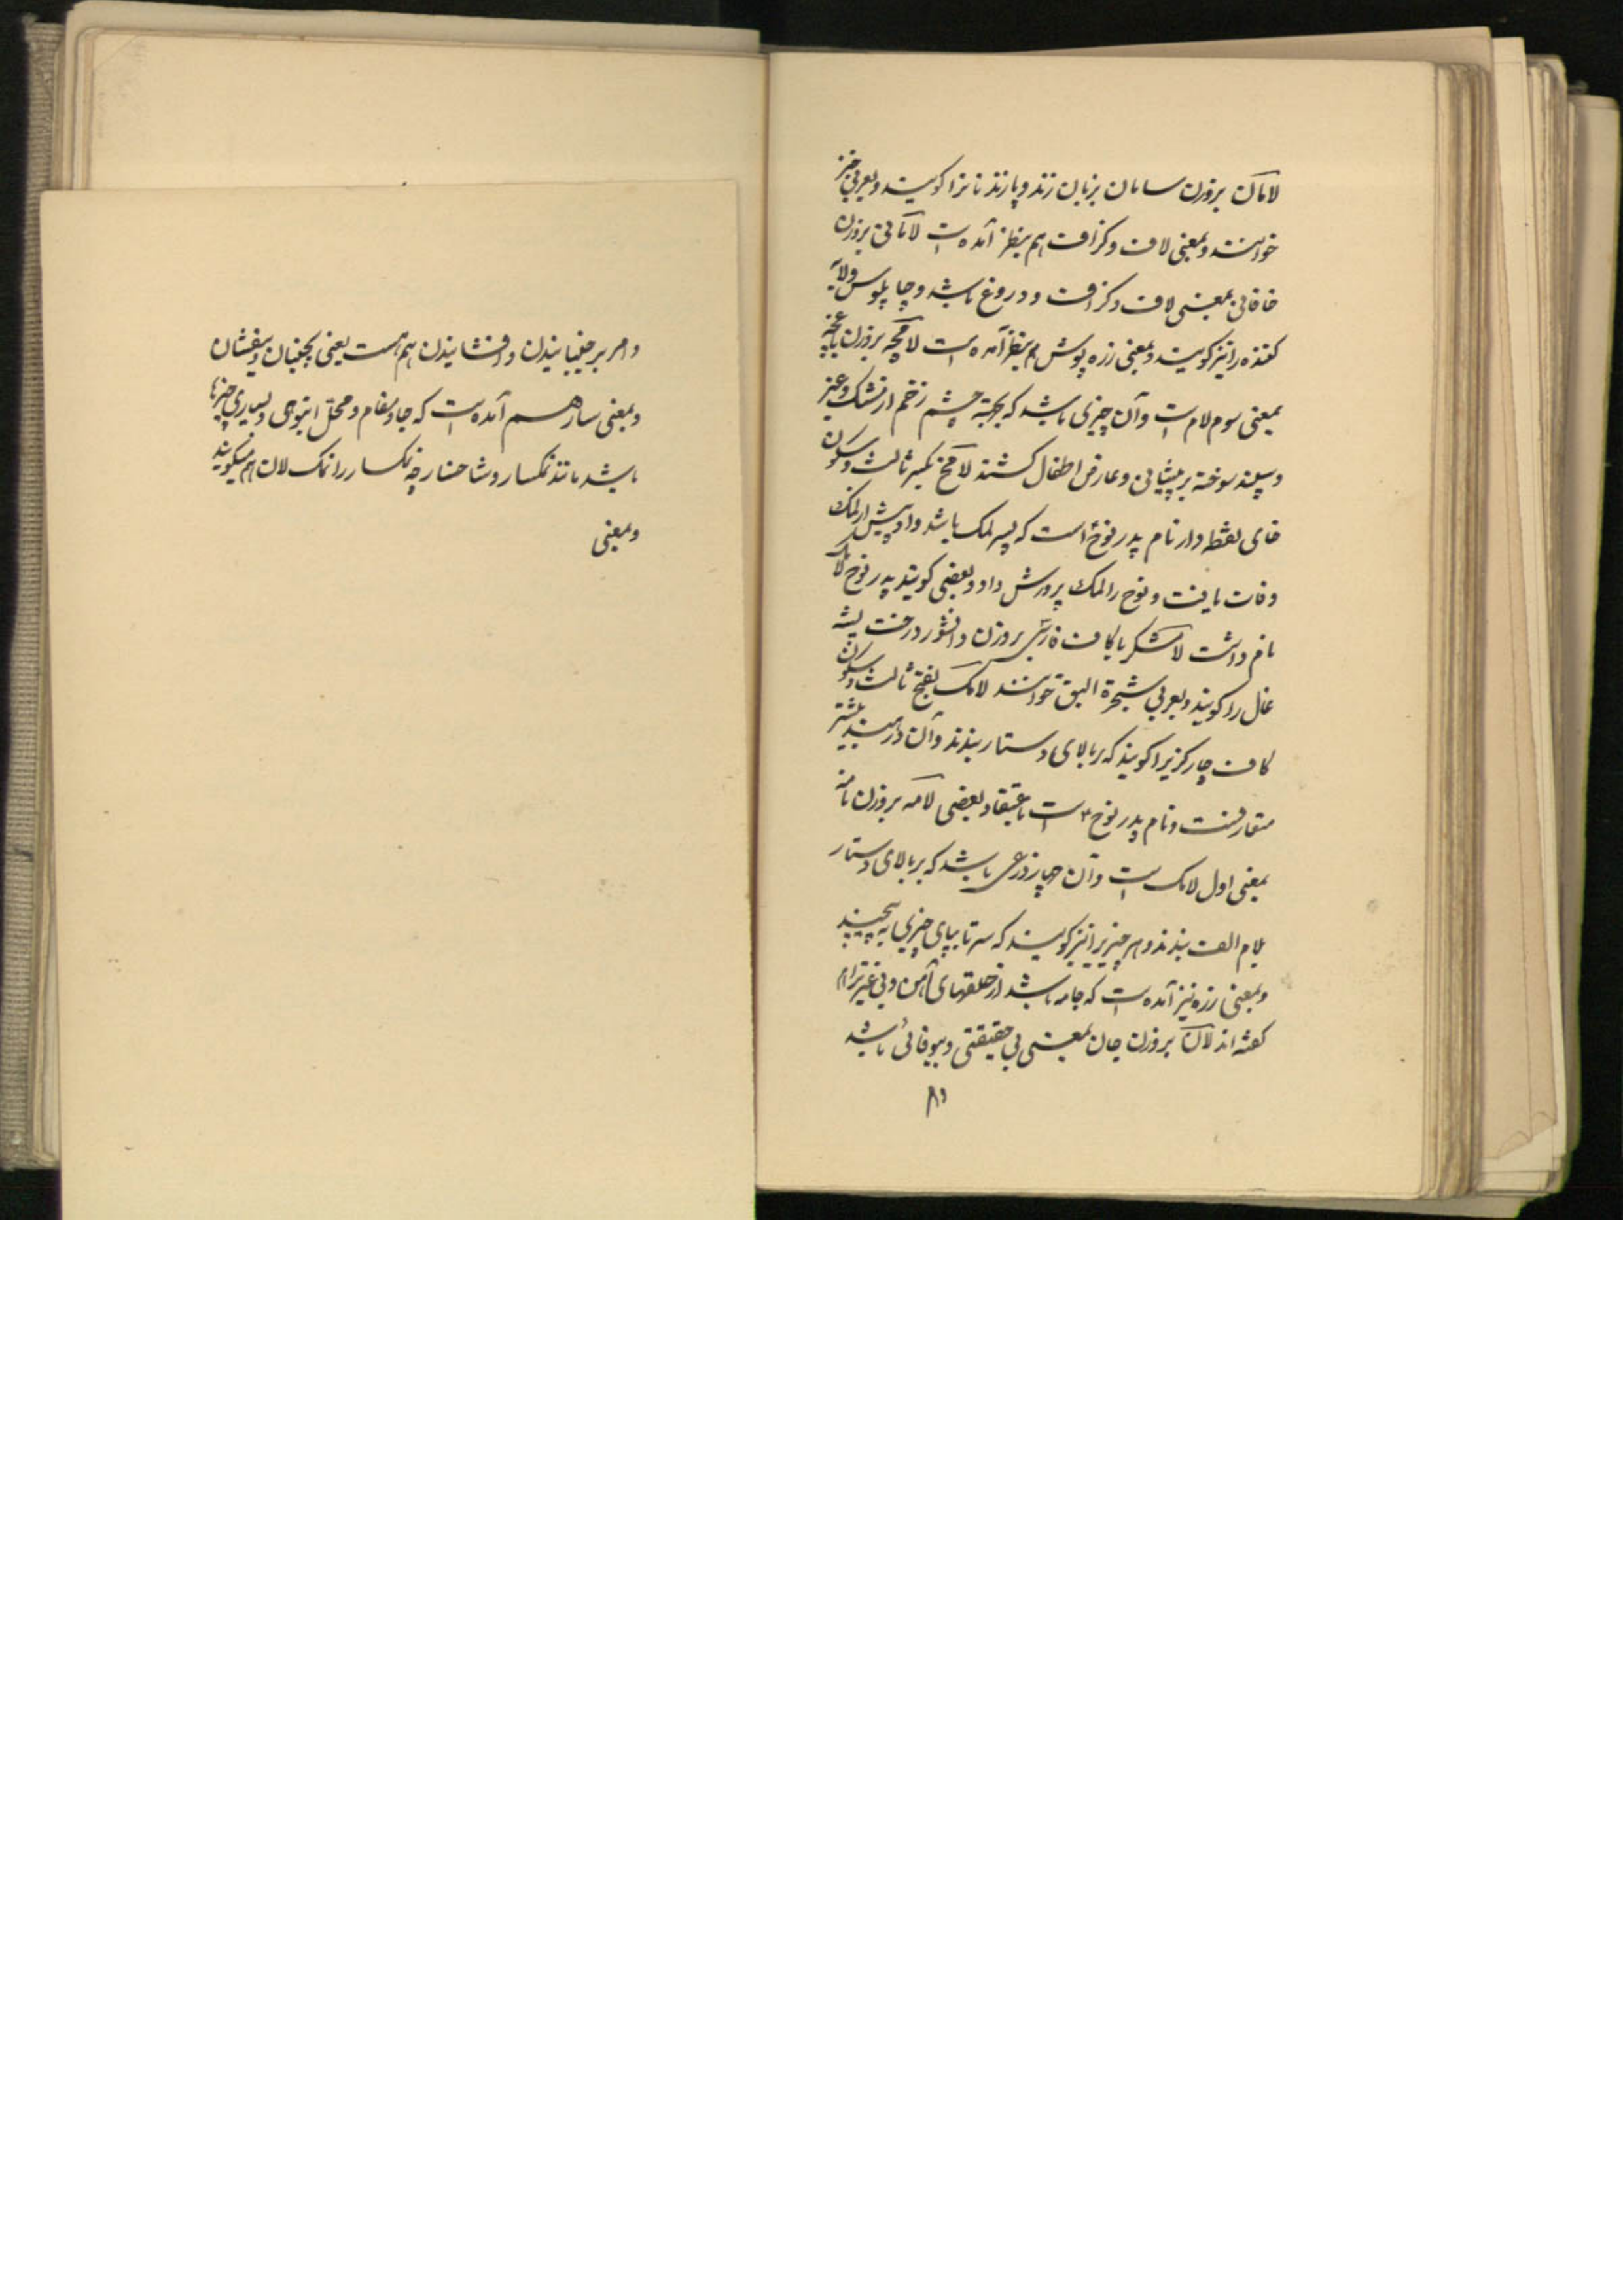 لامان بروزن سامان بزبان زند و پازند نانرا کویند و بعربی خبز
خوانند و بمعنی لاف و کزاف هم بنظر آمده است لامانی بروزن
خاقانی بمعنی لاف و کزاف و دروغ باشد و چاپلوس و لابه
کننده را نیز کویند و بمعنی زره پوش هم بنظر آمده است لامچه بروزن باغچه
بمعنی سوم لام است و آن چیزی باشد که بجهة چشم زخم از مشک و عنبر
و سپند سوخته بر پیشانی و عارض اطفال کشند لامخ بکسر ثالث و سکون
خای نقطه دار نام پدر نوح است که پسر لمک باشد و او پیش از لمک
وفات یافت و نوح را لمک پرورش داد و بعضی کویند پدر نوح لامک
نام داشت لامشکر با کاف فارسی بروزن دانشور درخت پشه
غال را کویند و بعربی شجرة البق خوانند لامک بفتح ثالث و سکون
کاف چارکزیرا کویند که بر بالای دستار بندند و آن در هند بیشتر
متعارفست و نام پدر نوح ۴ است باعتقاد بعضی لامه بروزن نامه
بمعنی اول لامک است و آن چهار ذرعی باشد که بر بالای دستار
بلام الف بندند و هر چیز یرا نیز کویند که سر تا بپای چیزی به پیچند
و بمعنی زره نیز آمده است که جامه باشد از حلقهای آهن و بی غیرترا هم
کفته اند لان بروزن جان بمعنی بی حقیقتی و بیوفائی باشد
وا
و امر بر جنبانیدن و افشانیدن هم هست یعنی بجنبان و بیفشان
و بمعنی سار هم آمده است که جا و مقام و محل انبوهی و بسیاری چیزها
باشد مانند نمکسار و شاخسار چه نمکسار را نمک لان هم میکویند
و بمعنی